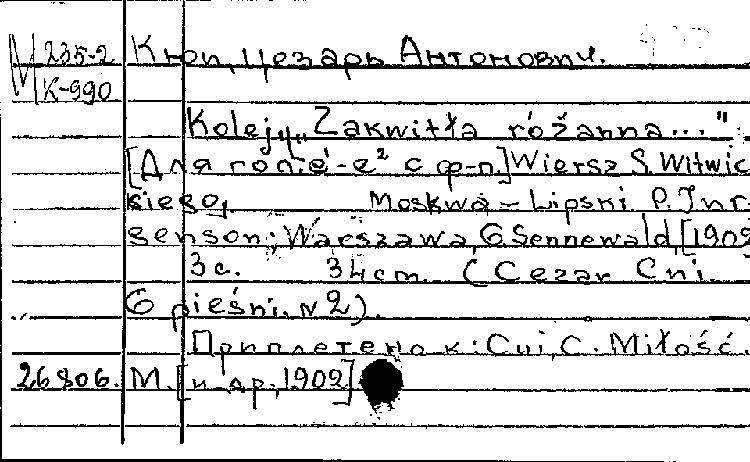 М 235-2 Кюи, Цезарь Антонович.
К-990
Kolejy „Zakwitła różanna..."
[Для голоса e¹-e² с ф-п.] Wiersz S. Witwic
kiego, Moskwa – Lipski P. Jur
genson; Warszawa, G. Sennewald, [1902
3 с. 34 cm. (Cezar Cui.
6 pieśni. N 2).
Приплетено к: Cui, C. Miłość.
26806. М. [и др., 1902]